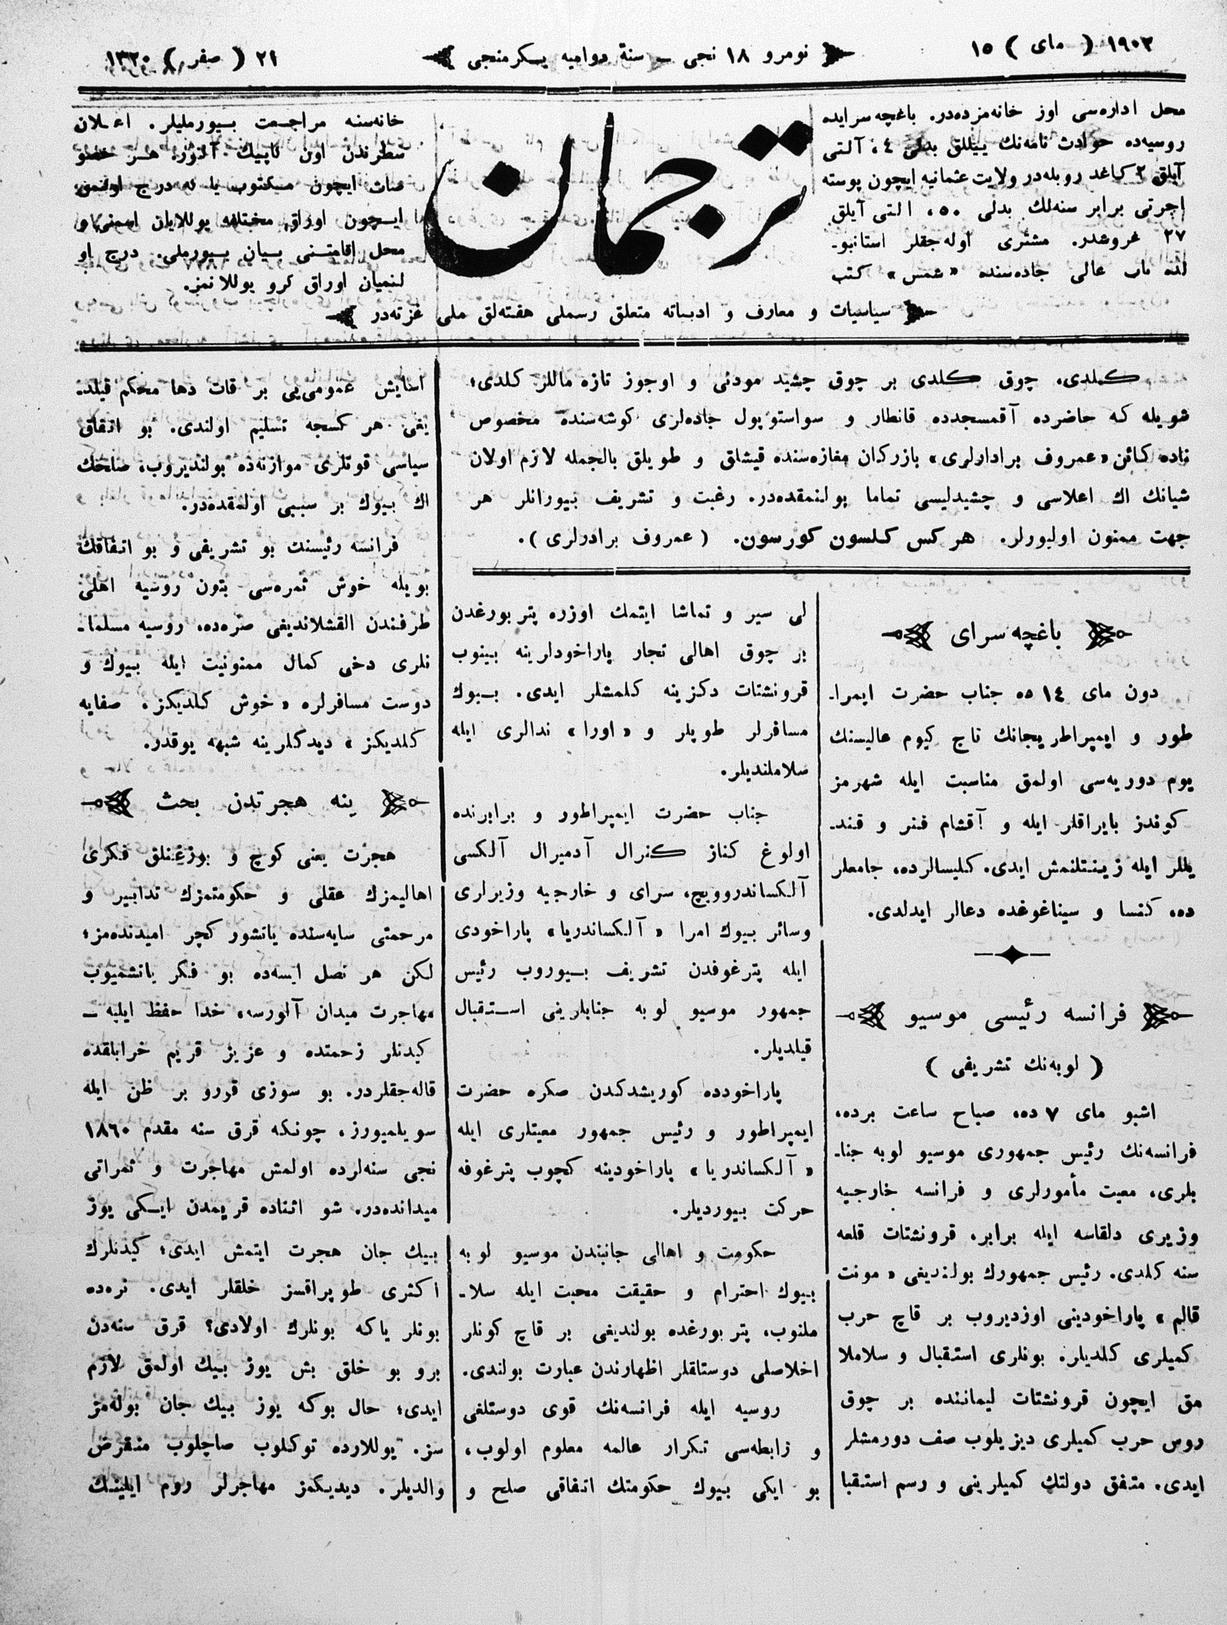 ١٩٠٢ ( مای ) ١٥
نومرو ١٨ نجی ــ سنۀ دوامیه یـکرمنجی
٢١ ( صفر ) ١٣٢٠
محل اداره‌سی اوز خانه‌مزده‌در. باغچه سرایده
روسیه‌ده حوادث نامه‌نك ییللق بدلی ٤، آلتی
آیلق ٢ کاغد روبله‌در ولایت عثمانیه ایچون پوسته
اجرتی برابر سنه‌لك بدلی ٥٠، التی آیلق
٢٧ غروشدر. مشتری اوله‌جقلر استانبو-
لده باب عالی جاده‌سنده «شمس» کتب
ترجمان
خانه‌سنه مراجعت بیورملیلر. اعلان
سطرندن اون کاپیك آلنور. هر خصو
صات ایچون مکتوب یا نه درج اولنمق
ایچون اوراق مختلفه یوللایان اسمنی و
محل اقامتنی بیان بیورملی. درج او
لنمیان اوراق کرو یوللانمز.
سیاسیات و معارف و ادبیاته متعلق رسملی هفته‌لق ملی غزته‌در
کلدی، چوق کلدی بر چوق چشید مودنی و اوجوز تازه ماللر کلدی؛
شویله که حاضرده آقمسجدده قانطار و سواستوپول جاده‌لری کوشه‌سنده مخصوص
کائن «عمروف برادرلری» بازرکان مغازه‌سنده قیشلق و طویلق بالجمله لازم اولان
شیانك اك اعلاسی و چشیدلیسی تماما بولنمقده‌در. رغبت و تشریف بیورانلر هر
جهت ممنون اولیورلر. هر کس کلسون کورسون. ( عمروف برادرلری ).
باغچه سرای
دون مای ١٤ ده جناب حضرت ایمپرا-
طور و ایمپراطریجانك تاج کیوم عالیسنك
یوم دوریه‌سی اولمق مناسبت ایله شهرمز
کوندز بایراقلر ایله و آقشام فنر و قند-
یللر ایله زینتلنمش ایدی. کلیسالرده، جامعلر
ده، کنسا و سیناغوغده دعالر ایدلدی.
فرانسه رئیسی موسیو
( لوبه‌نك تشریفی )
اشبو مای ٧ ده، صباح ساعت برده،
فرانسه‌نك رئیس جمهوری موسیو لوبه جنا-
بلری، معیت مأمورلری و فرانسه خارجیه
وزیری دلقاسه ایله برابر، قرونشتات قلعه
سنه کلدی. رئیس جمهورك بولندیغی «مونت
قالم» پاراخودینی اوزدیروب بر قاچ حرب
کمیلری کلدیلر. بونلری استقبال و سلاملا
مق ایچون قرونشتات لیماننده بر چوق
روس حرب کمیلری دیزیلوب صف دورمشلر
ایدی. متفق دولتك کمیلرینی و رسم استقبا
لی سیر و تماشا ایتمك اوزره پتربورغدن
بر چوق اهالی تجار پاراخودلرینه بینوب
قرونشتات دکزینه کلمشلر ایدی. بیوك
مسافرلر طوپلر و «اورا» ندالری ایله
سلاملندیلر.
جناب حضرت ایمپراطور و برابرنده
اولوغ کناز کنرال آدمیرال آلکسی
آلکساندروویچ، سرای و خارجیه وزیرلری
وسائر بیوك امرا «آلکساندریا» پاراخودی
ایله پترغوفدن تشریف بیوروب رئیس
جمهور موسیو لوبه جنابلرینی استقبال
قیلدیلر.
پاراخودده کوریشدکدن صکره حضرت
ایمپراطور و رئیس جمهور معیتلری ایله
«آلکساندریا» پاراخودینه کچوب پترغوفه
حرکت بیوردیلر.
حکومت و اهالی جانبندن موسیو لوبه
بیوك احترام و حقیقت محبت ایله سلا-
ملنوب، پتربورغده بولندیغی بر قاچ کونلر
اخلاصلی دوستلقلر اظهارندن عبارت بولندی.
روسیه ایله فرانسه‌نك قوی دوستلغی
و رابطه‌سی تکرار عالمه معلوم اولوب،
بو ایکی بیوك حکومتك اتفاقی صلح و
اسایش عمومی‌یی بر قات دها محکم قیلد-
یغی هر کسجه تسلیم اولندی. بو اتفاق
سیاسی قوتلری موازنه‌ده بولندیروب، صلحك
اك بیوك بر سببی اولمقده‌در.
فرانسه رئیسنك بو تشریفی و بو اتفاقك
بویله خوش ثمره‌سی بتون روسیه اهلی
طرفندن القشلاندیغی صره‌ده، روسیه مسلما-
نلری دخی کمال ممنونیت ایله بیوك و
دوست مسافرلره «خوش کلدیکز، صفایه
کلدیکز» دیدکلرینه شبهه یوقدر.
ینه هجرتدن بحث
هجرت یعنی کوچ و بوزغنلق فکری
اهالیمزك عقلی و حکومتمزك تدابیر و
مرحمتی سایه‌سنده یاتشور کچر امیدنده‌مز؛
لکن هر نصل ایسه‌ده بو فکر یاتشمیوب
مهاجرت میدان آلورسه، خدا حفظ ایلیه ــ
کیدنلر زحمتده و عزیز قریم خرابلقده
قاله‌جقلردر. بو سوزی قورو بر ظن ایله
سویلمیورز، چونکه قرق سنه مقدم ١٨٦٠
نجی سنه‌لرده اولمش مهاجرت و ثمراتی
میدانده‌در. شو اثناده قریمدن ایکی یوز
بیك جان هجرت ایتمش ایدی؛ کیدنلرك
اکثری طوپراقسز خلقلر ایدی. نره‌ده
بونلر یاکه بونلرك اولادی؟ قرق سنه‌دن
برو بو خلق بش یوز بیك اولمق لازم
ایدی؛ حال بوکه یوز بیك جان بوله‌مز
سز. یوللارده توکلوب صاچلوب منقرض
والدیلر. دیدیکمز مهاجرلر روم ایلینك